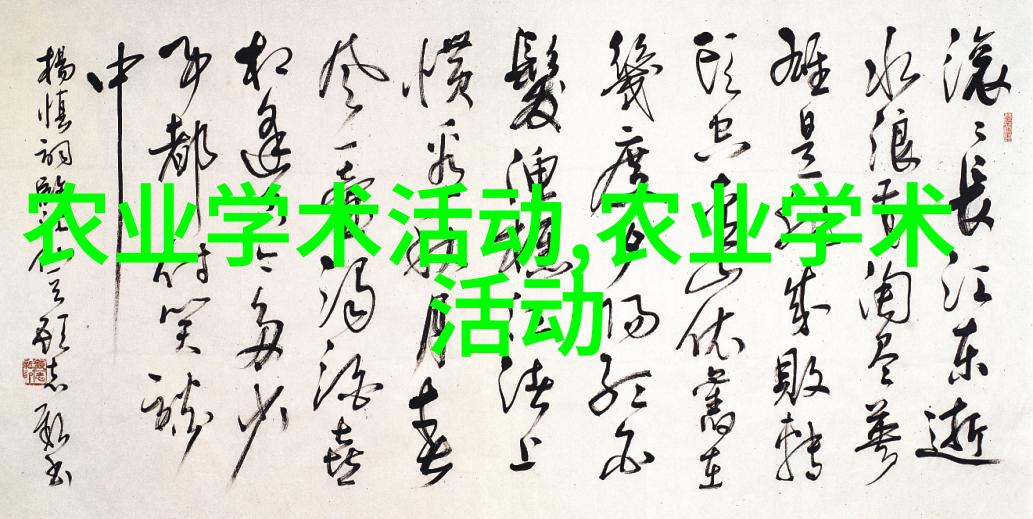 农业学术活动,农业学术
活动
滚〻長江东逝
水浪花淘尽英
雄是非成敗轉
头空青山依舊在
幾度夕阳红白
髮渔樵江渚上
惯看秋月春
风一壶浊酒喜
相逢古今多少
事都付笑谈
中
楊慎詞臨江仙